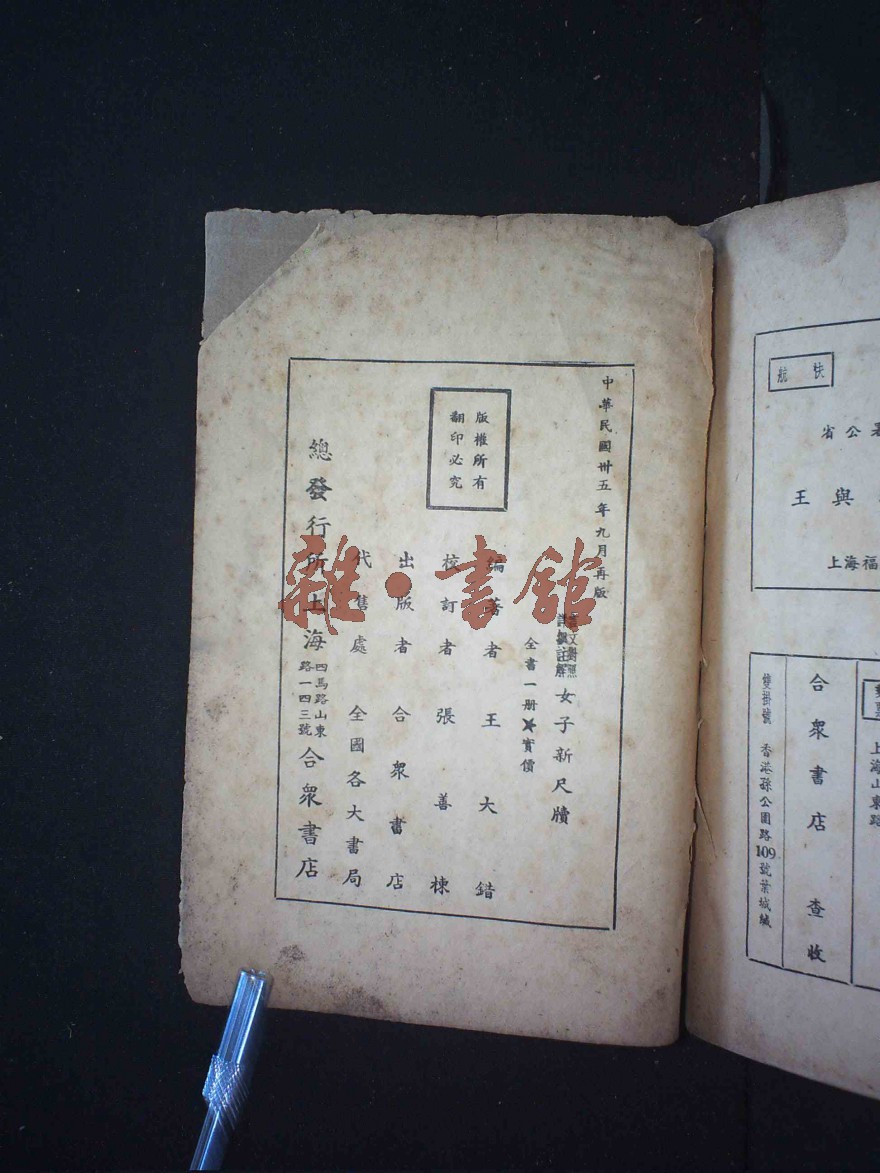 中華民國卅五年九月再版
言文對照
詳細註解
女子新尺牘
全書一册★實價
版權所有
翻印必究
編著者王大錯
校訂者張善楝
出版者合衆書店
代售處全國各大書局
總發行所上海
四馬路山東
路一四三號
合衆書店
雜·書館
快航
省公署
王與
上海福
上海山東路
合衆書店查收
雙掛號
香港孫公園路109號葉城緘